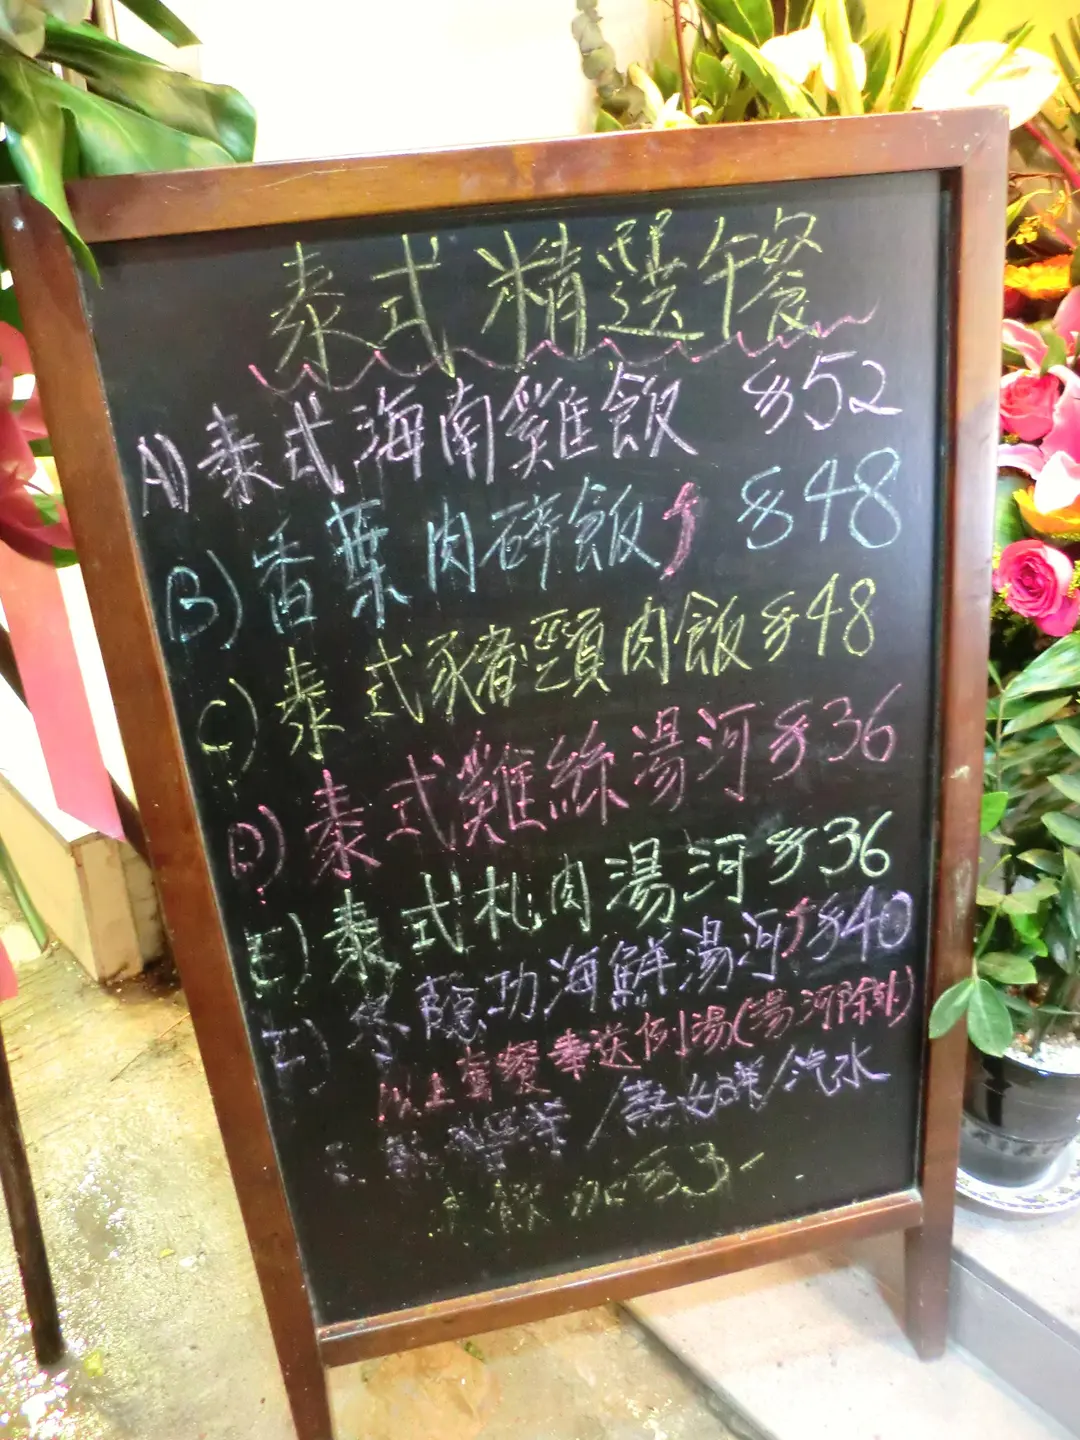 泰式精選午餐
A) 泰式海南雞飯 $52
B) 香葉肉碎飯 $48
C) 泰式豬頸肉飯 $48
D) 泰式雞絲湯河 $36
E) 泰式扎肉湯河 $36
冬蔭功海鮮湯河 $40
以上套餐奉送例湯(湯河除外)
/熱奶茶/汽水
凍飲加$3-